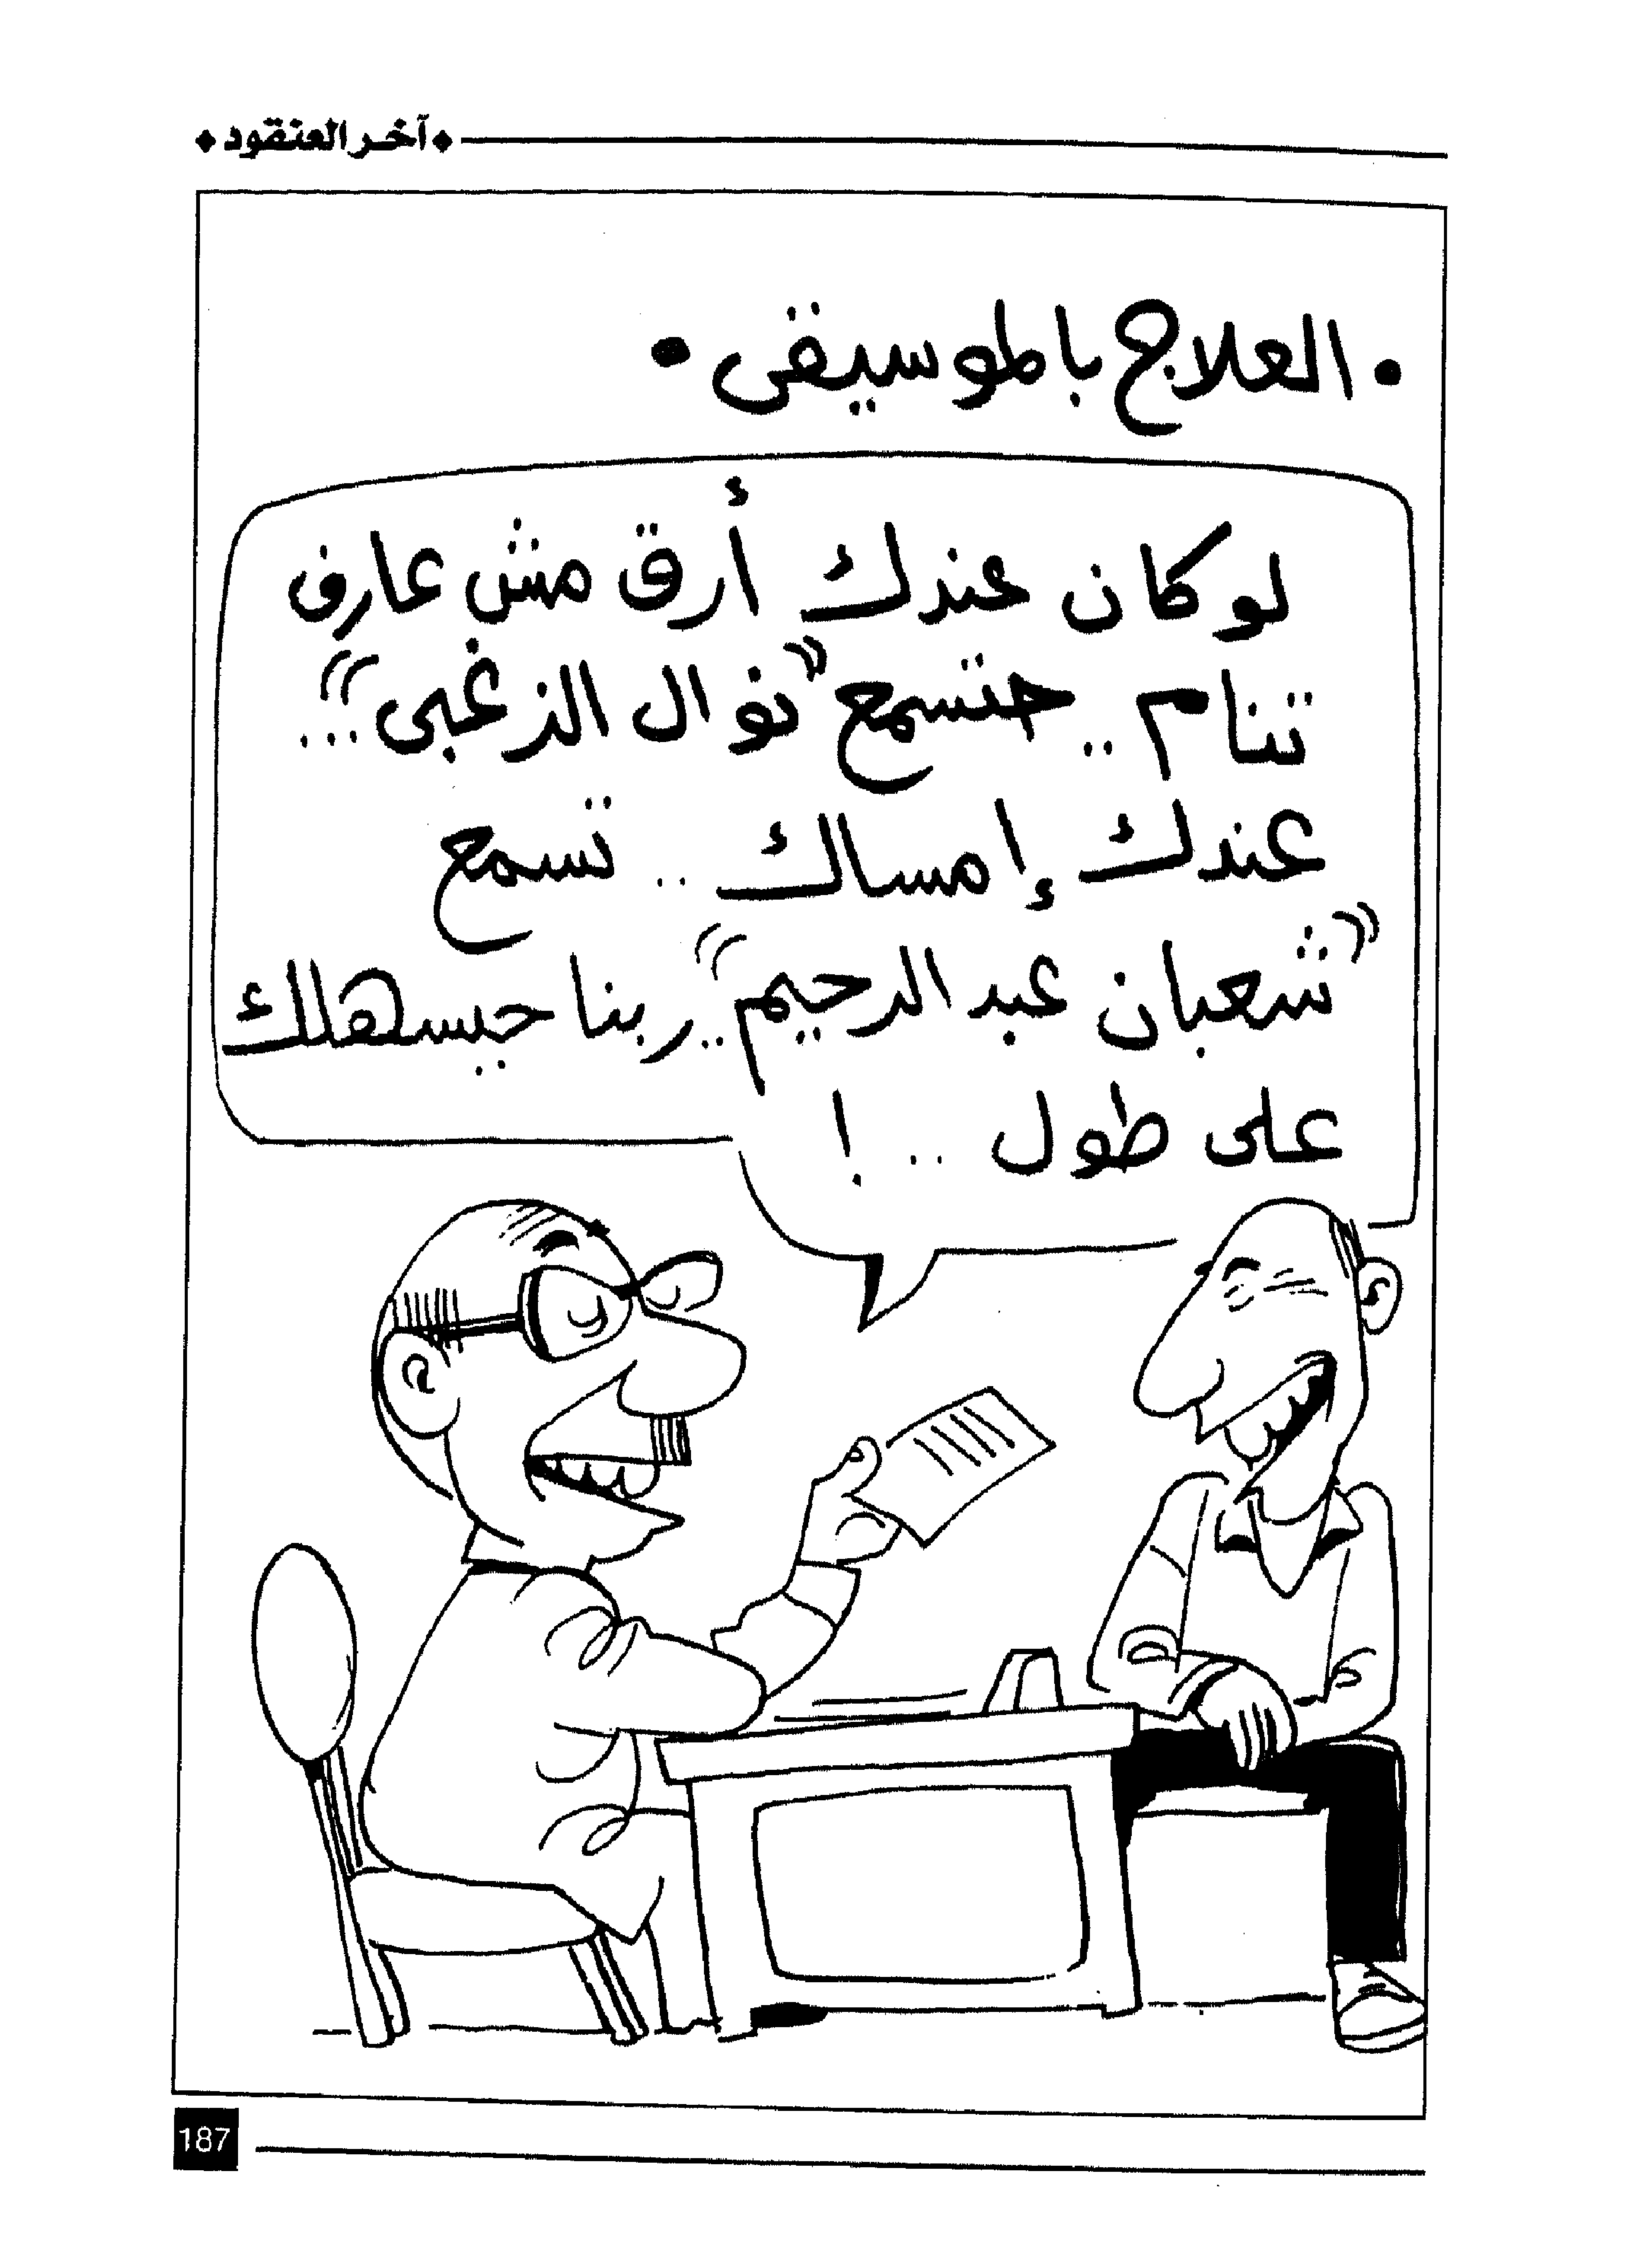 آخر العنقود
• العلاج بالموسيقى •
لو كان عندك أرق مش عارف
تنام .. حتسمع "نوال الزغبى" ...
عندك إمساك .. تسمع
"شعبان عبد الرحيم" .. ربنا حيسهلك
على طول .. !
187